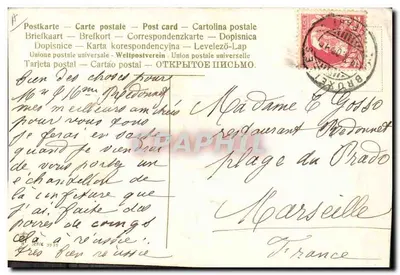 Postkarte - Carte postale - Post card - Cartolina postale
Briefkaart - Brefkort - Correspondenzkarte - Dopisnica
Dopisnice - Karta korespondencyjna - Levelező-Lap
Unione postale universale - Weltpostverein - Union postale universelle
Tarjeta postal - Cartao postal - ОТКРЫТОЕ ПИСЬМО.
Bien des choses pour
Mr & Mme Bodonet
mes meilleurs amitiés
pour vous tous
je ferai en sorte
quand je viendrai
de vous porter un
échantillon de
la confiture que
j'ai faite des
poires de coings
celà a réussie
très bien réussie
Madame E Gosso
restaurant Bodonnet
plage du Prado
Marseille
France
BRUX
DELCAMPE